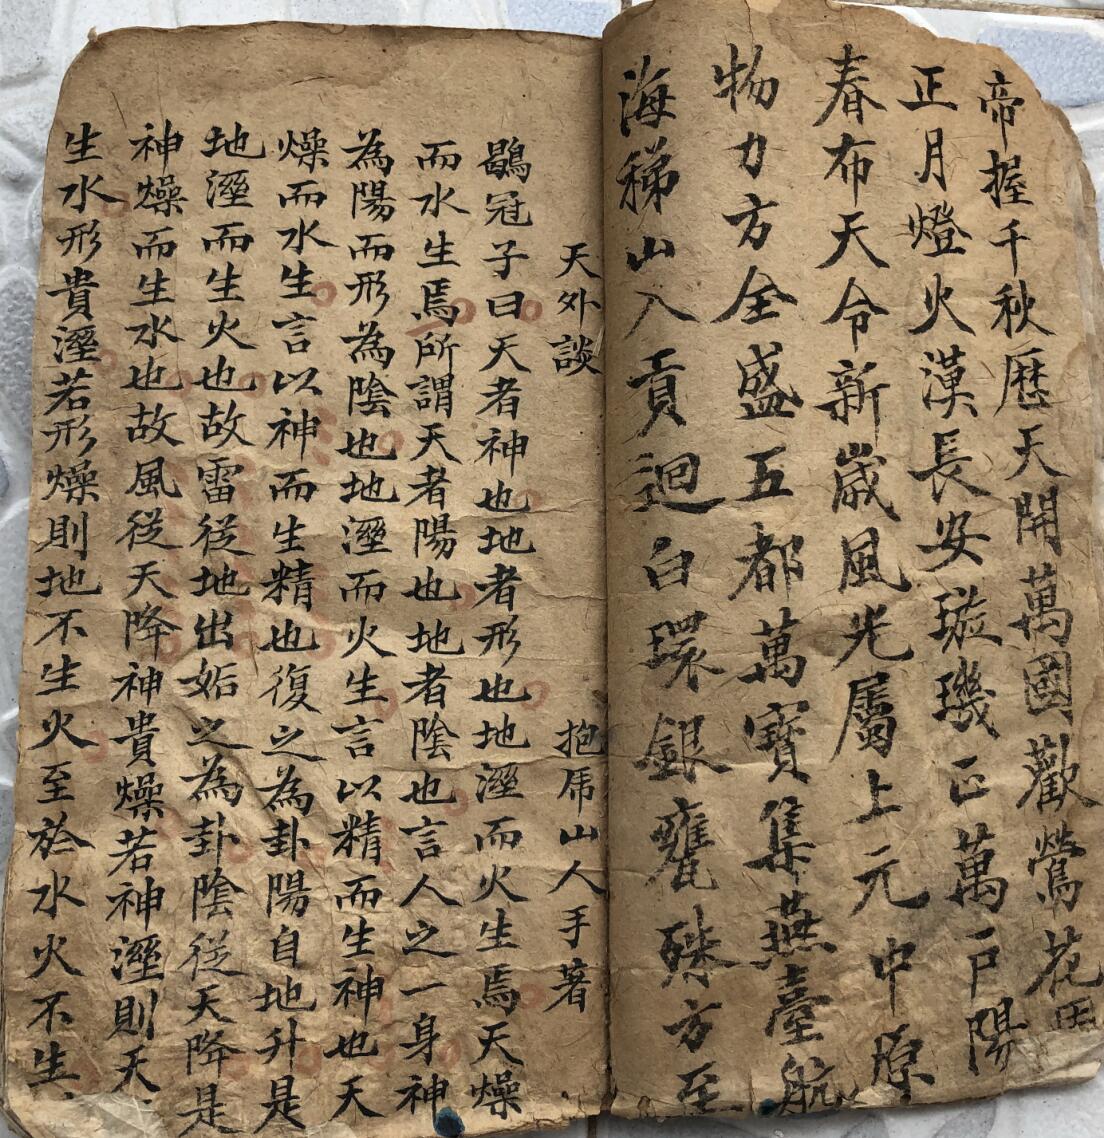 帝握千秋歷天開萬國歡鶯花
正月燈火漢長安璇璣正萬戶陽
春布天令新歲風光屬上元中原
物力方全盛五都萬寶集燕臺航
海稊山入貢迴白環銀甕殊方至
天外談 抱席山人手著
鶡冠子曰天者神也地者形也地溼而火生焉天燥
而水生焉所謂天者陽也地者陰也言人之一身神
為陽而形為陰也地溼而火生言以精而生神也天
燥而水生言以神而生精也復之為卦陽自地升是
地溼而生火也故雷從地出姤之為卦陰從天降是
神燥而生水也故風從天降神貴燥若神溼則天
生水形貴溼若形燥則地不生火至於水火不生